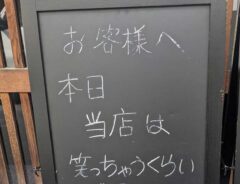 お客様へ
本日
当店は
笑っちゃうくらい